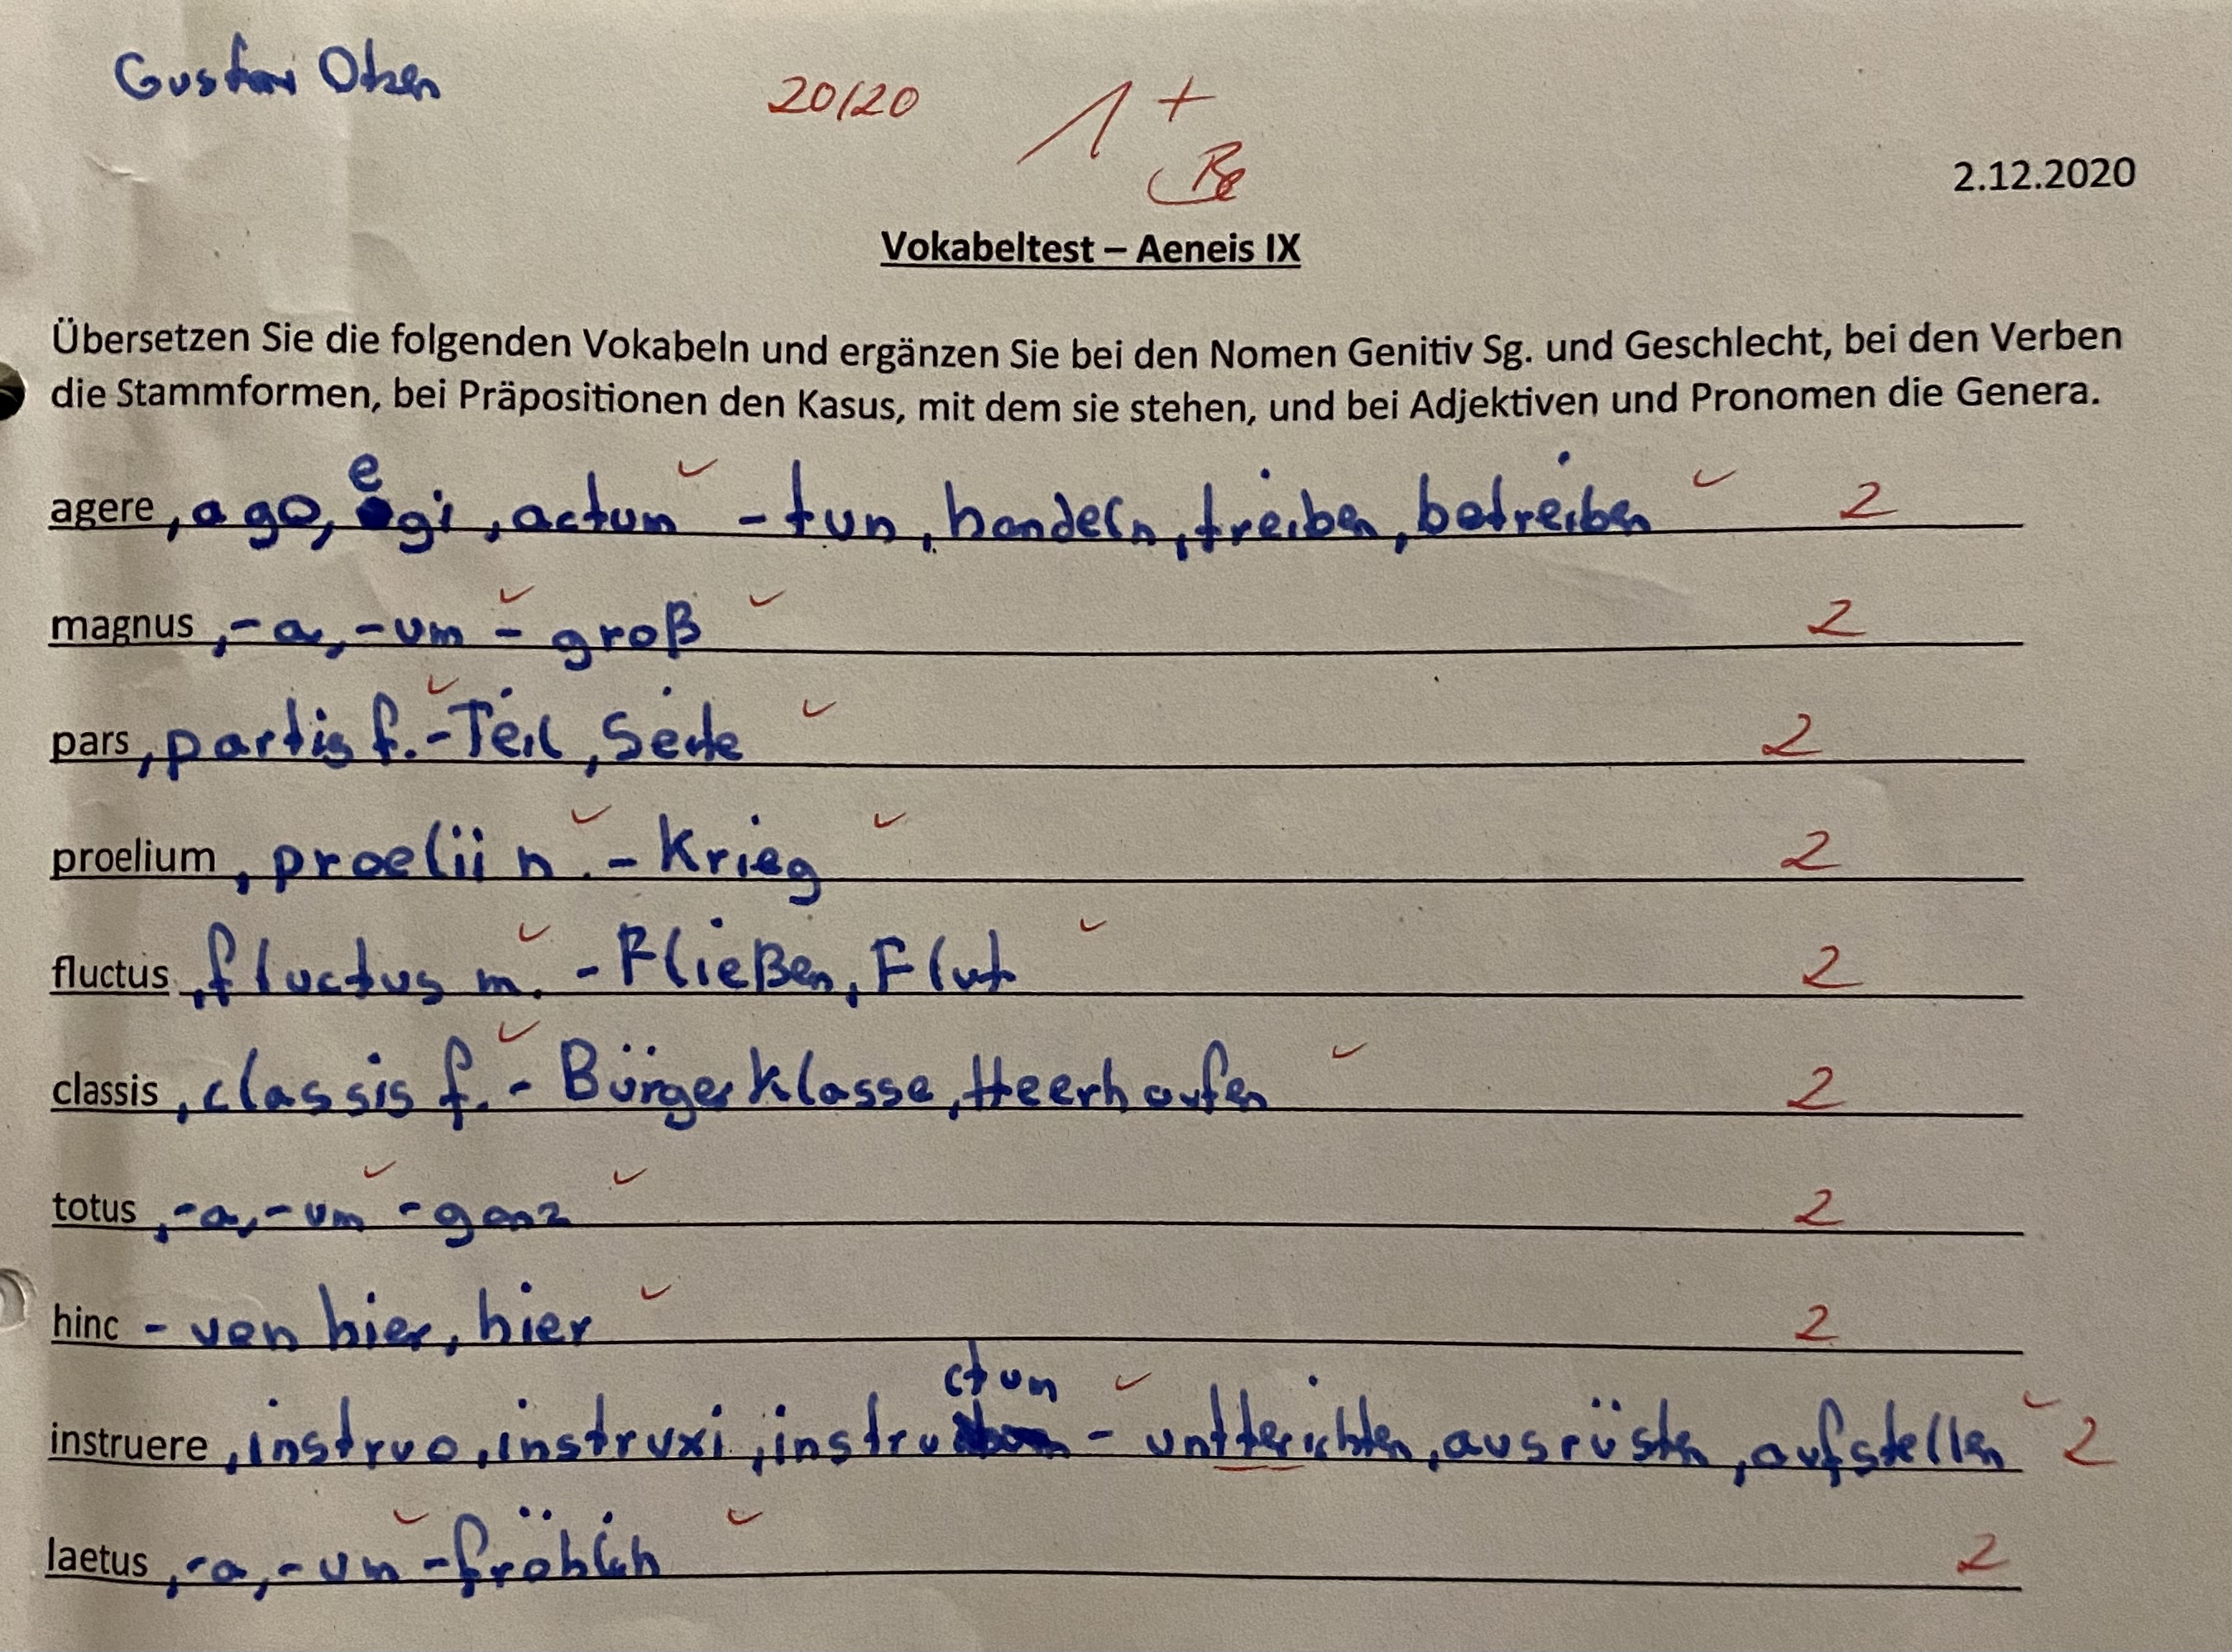 Gustav Otzen
20/20 1+
Be
2.12.2020
Vokabeltest – Aeneis IX
Übersetzen Sie die folgenden Vokabeln und ergänzen Sie bei den Nomen Genitiv Sg. und Geschlecht, bei den Verben
die Stammformen, bei Präpositionen den Kasus, mit dem sie stehen, und bei Adjektiven und Pronomen die Genera.
agere, ago, egi, actum - tun, handeln, treiben, betreiben 2
magnus, -a, -um - groß 2
pars, partis f. - Teil, Seite 2
proelium, proelii n. - Krieg 2
fluctus, fluctus m. - Fließen, Flut 2
classis, classis f. - Bürgerklasse, Heerhaufen 2
totus, -a, -um - ganz 2
hinc - von hier, hier 2
instruere, instruo, instruxi, instructum - untterichten, ausrüsten, aufstellen 2
laetus, -a, -um - fröhlich 2